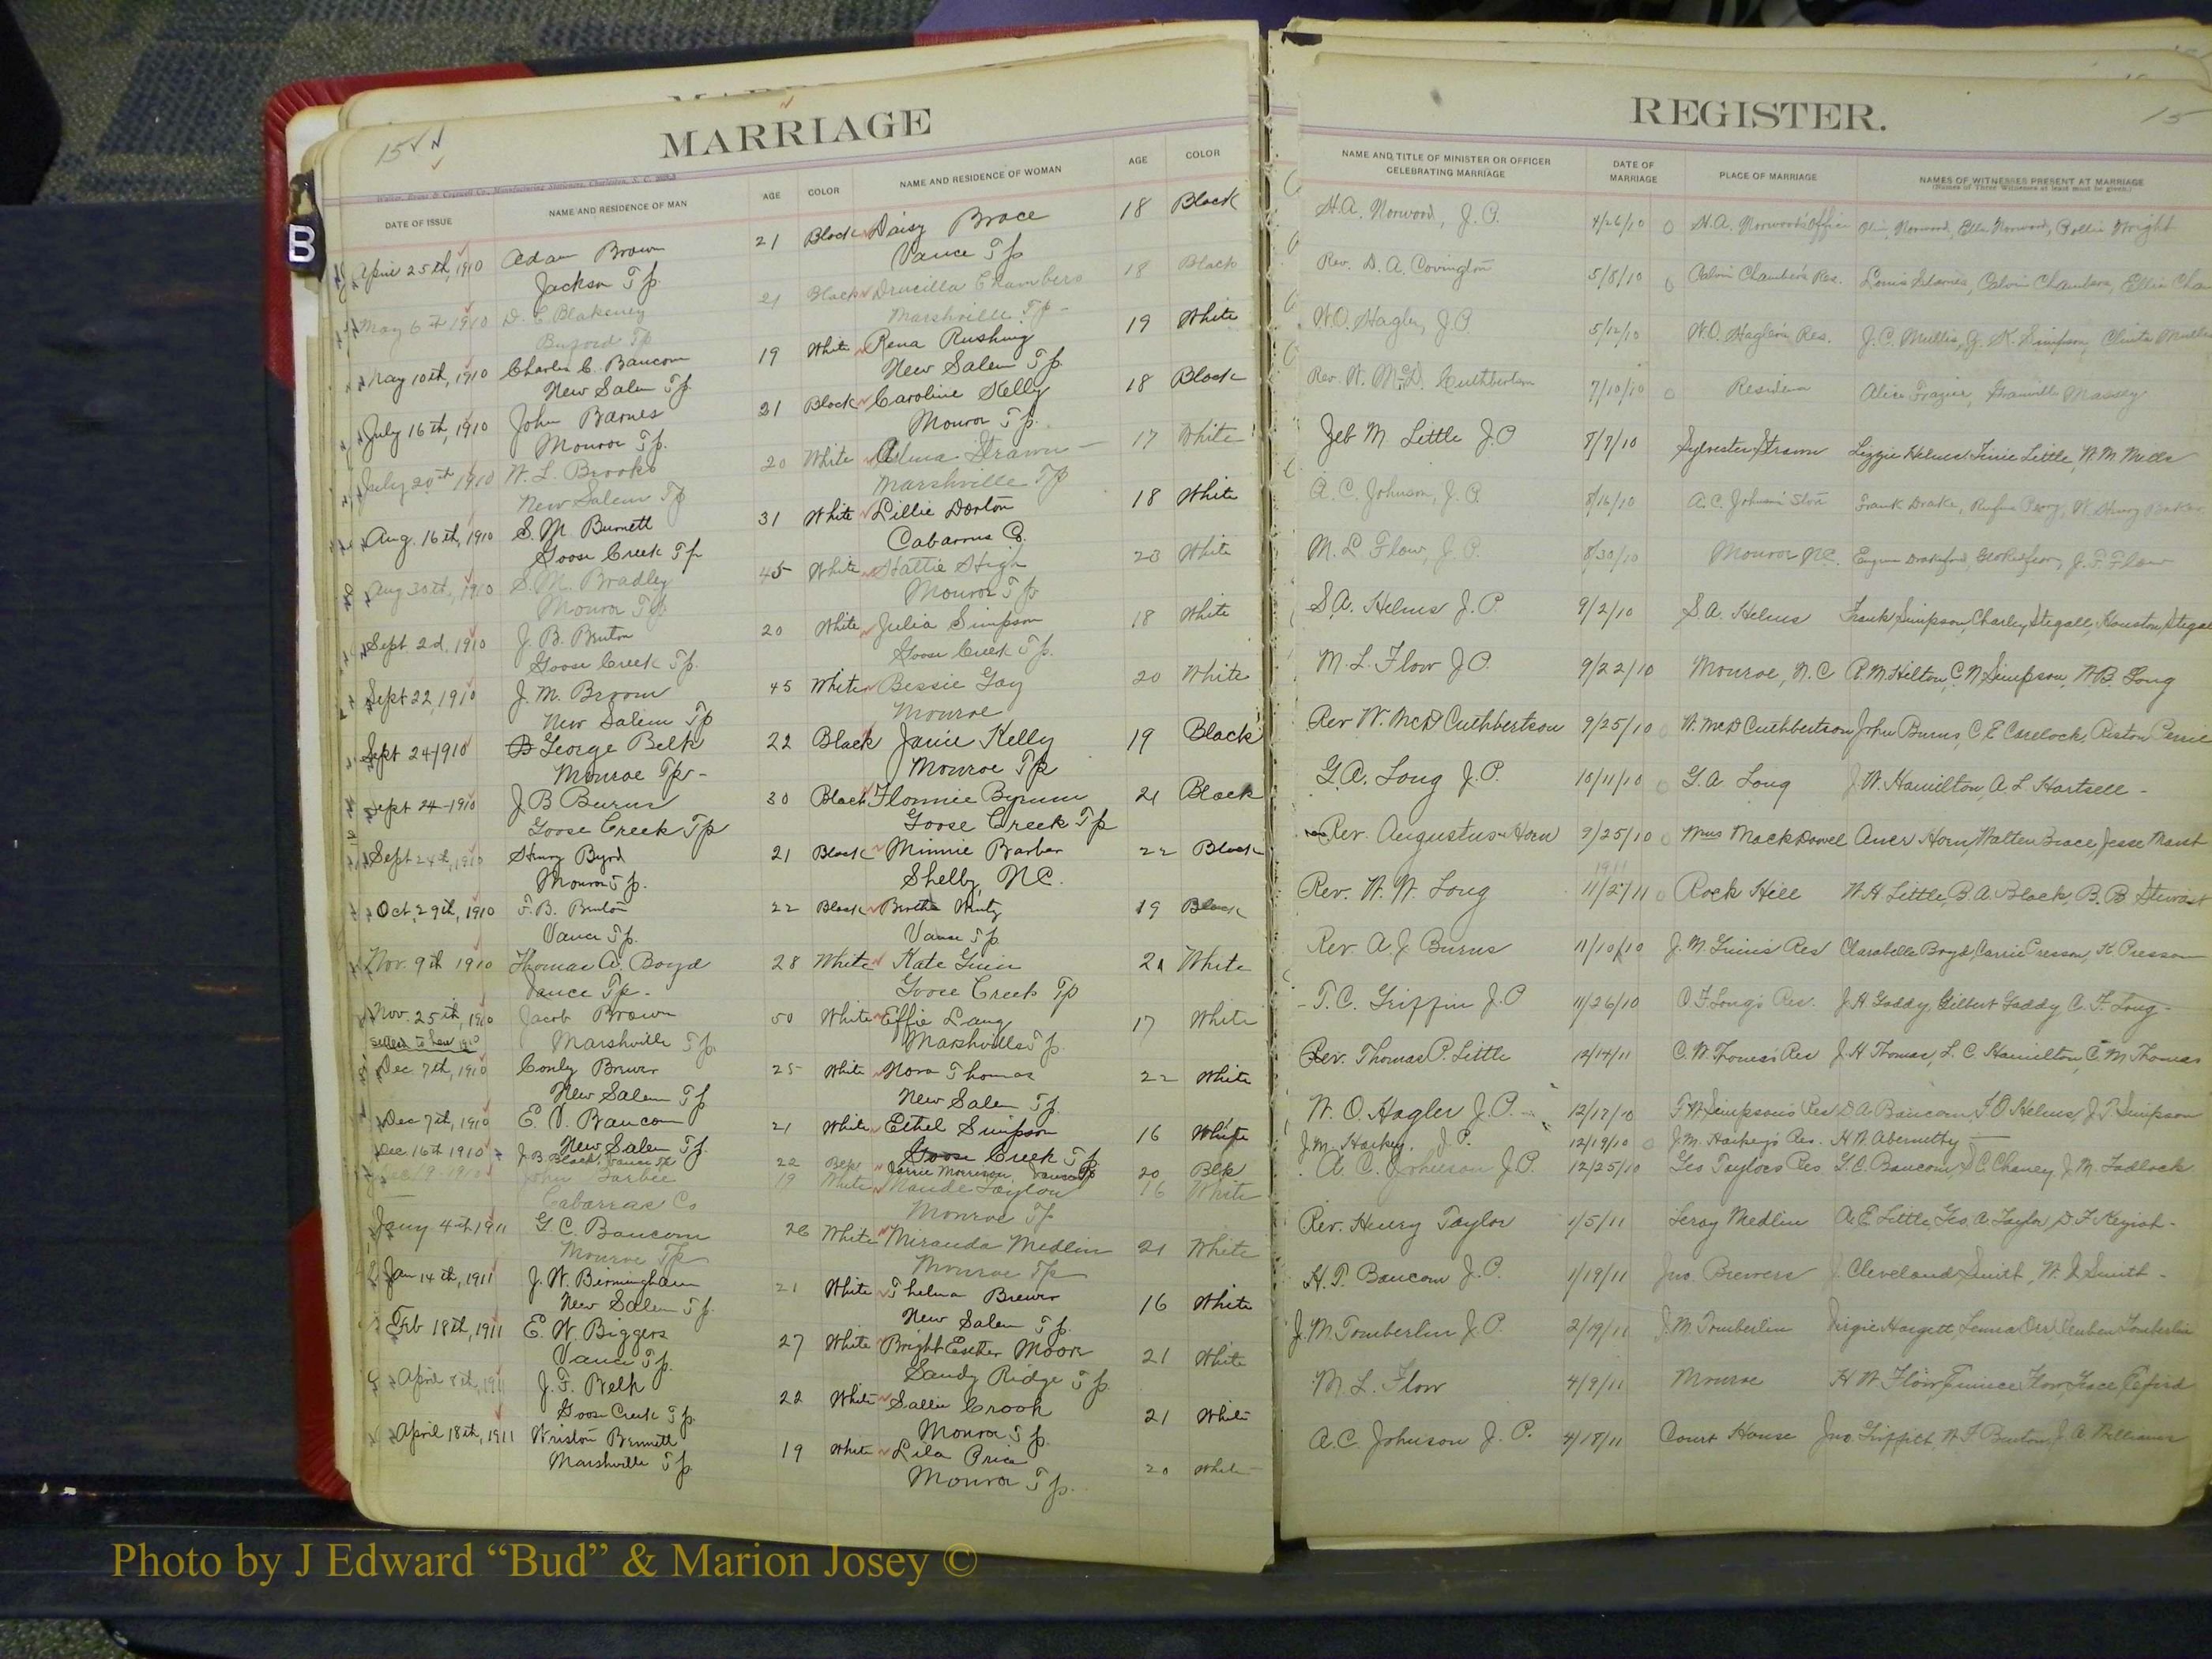 MARRIAGE
15
DATE OF ISSUE NAME AND RESIDENCE OF MAN AGE COLOR NAME AND RESIDENCE OF WOMAN AGE COLOR
April 25th, 1910 Adam Brown 21 Black Daisy Brace 18 Black
Jackson Tp. Vance Tp
May 6th 1910 D. C. Blakeney 21 Black Drucilla Chambers 18 Black
Buford Tp Marshville Tp
May 10th, 1910 Charlie C. Baucom 19 White Rena Rushing 19 White
New Salem Tp. New Salem Tp.
July 16th, 1910 John Barnes 21 Black Caroline Kelly 18 Black
Monroe Tp. Monroe Tp.
July 20th 1910 W. L. Brooks 20 White Alma Strawn 17 White
New Salem Tp Marshville Tp
Aug. 16th, 1910 S. M. Burnett 31 White Lillie Dorton 18 White
Goose Creek Tp Cabarrus Co.
Aug 30th, 1910 S. M. Bradley 45 White Hattie High 23 White
Monroe Tp. Monroe Tp
Sept. 2d. 1910 J. B. Benton 20 White Julia Simpson 18 White
Goose Creek Tp. Goose Creek Tp.
Sept 22, 1910 J. M. Broom 45 White Bessie Gay 20 White
New Salem Tp Monroe
Sept 24 1910 George Belk 22 Black Janie Kelly 19 Black
Monroe Tp - Monroe Tp
Sept 24-1910 J B Burns 30 Black Flonnie Bynum 21 Black
Goose Creek Tp Goose Creek Tp
Sept 24th, 1910 Henry Byrd 21 Black Minnie Barber 22 Black
Monroe Tp. Shelby, NC.
Oct. 29th, 1910 F. B. Benton 22 Black Bertha 19 Black
Vance Tp. Vance Tp
Nov. 9th 1910 Thomas A. Boyd 28 White Kate Guin 21 White
Vance Tp. Goose Creek Tp
Nov. 25th, 1910 Jacob Brown 50 White Effie Lang 17 White
Marshville Tp. Marshville Tp.
Dec. 7th, 1910 Conly Brewer 25 White Nora Thomas 22 White
New Salem Tp New Salem Tp.
Dec 7th, 1910 E. V. Baucom 21 White Ethel Simpson 16 White
New Salem Tp. Goose Creek Tp
Dec 16th 1910 J. B. Black, Vance Tp 22 Blk Carrie Morrison, Vance Tp 20 Blk
Dec 19-1910 John Barbee 19 White Maude Taylor 16 White
Cabarras Co Monroe Tp
Jany 4th 1911 G. C. Baucom 26 White Miranda Medlin 21 White
Monroe Tp Monroe Tp
Jan 14th, 1911 J. W. Birmingham 21 White Thelma Brewer 16 White
New Salem Tp. New Salem Tp.
Feb 18th, 1911 E. W. Biggers 27 White Bright Esther Moore 21 White
Vance Tp. Sandy Ridge Tp.
April 8th, 1911 J. F. Belk 22 White Sallie Crook 21 White
Goose Creek Tp. Monroe Tp.
April 18th, 1911 Wriston Bennett 19 White Lila Price 20 White
Marshville Tp Monroe Tp.
REGISTER.
15
NAME AND TITLE OF MINISTER OR OFFICER CELEBRATING MARRIAGE DATE OF MARRIAGE PLACE OF MARRIAGE NAMES OF WITNESSES PRESENT AT MARRIAGE
(Names of Three Witnesses at least must be given.)
H. A. Norwood, J. P. 4/26/10 H. A. Norwood's Office Norwood, Ella Norwood, Wright
Rev. D. A. Covington 5/8/10 Calvin Chambers Res. Louis Starnes, Calvin Chambers, Ellen Cham
W. O. Hagler, J P 5/12/10 W. O. Hagler's Res. J. C. Mullis, G. K. Simpson, Mullis
Rev. W. McD. Cuthbertson 7/10/10 Residence Alice Frazier, Granville Massey
Zeb M. Little J. P 8/7/10 Sylvester Strawn Lizzie Helms Little, W. M. Mills
A. C. Johnson, J. P. 8/16/10 A. C. Johnson's Store Frank Drake, Rufus Perry, W. Henry Baker
M. L. Flow, J. P. 8/30/10 Monroe NC. Eugene J. F. Flow
S. A. Helms J. P. 9/2/10 S. A. Helms Frank Simpson, Charley Stegall, Houston Stegal
M. L. Flow J. P. 9/22/10 Monroe, N. C R. M. Hilton, C. N. Simpson, W B. Long
Rev W. McD Cuthbertson 9/25/10 W. McD Cuthbertson John Burns, C. E. Carelock, Riston
G. A. Long J. P. 10/11/10 G. A. Long J. W. Hamilton, A. L Hartsell -
Rev. Augustus Horn 9/25/10 Mack Dowel Horn, Walter Grace, Jesse Marsh
1911
Rev. W. W. Long 11/27/11 Rock Hill W. H. Little, B. A. Black, B. B Stewart
Rev. A. J. Burns 11/10/10 J. M. Guin's Res Clarabelle Boyd, Carrie Presson, K Presson
T. C. Griffin J. P 11/26/10 O F Long's Res. J. H Gaddy, Gilbert Gaddy C. F. Long -
Rev. Thomas P. Little 12/14/11 C. W. Thomas's Res J. H Thomas, L. C. Hamilton, C. M Thomas
W. O. Hagler J. P. 12/17/10 F. W. Simpson's Res D A Baucom, F. O Helms, J. T Simpson
J. M. Harkey, J. P. 12/19/10 J. M. Harkey's Res. H. W. Abernethy
A. C. Johnson J. P. 12/25/10 Geo Taylors Res G. C. Baucom, C Chaney, J. M. Tadlock
Rev. Henry Taylor 1/5/11 Leroy Medlin A. E. Little, Geo. A. Taylor, D. F.
H. T. Baucom J. P. 1/19/11 Jno. Brewers J. Cleveland Smith, W. D. Smith -
J. M Tomberlin J. P. 2/19/11 J. M Tomberlin Virgie Hargett, Reuben Tomberlin
M. L. Flow 4/9/11 Monroe H W. Flow, Eunice Flow, Grace Efird
A. C. Johnson J. P. 4/18/11 Court House Jno. Griffith, W. F Benton, J. A Williams
B
Photo by J Edward “Bud” & Marion Josey ©